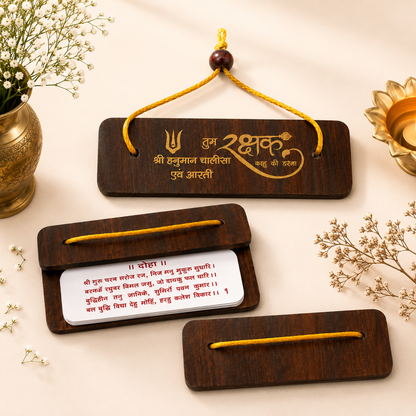 तुम रक्षक
काहु की डरना
श्री हनुमान चालीसा
एवं आरती
॥ दोहा ॥
श्री गुरु चरन सरोज रज, निज मनु मुकुरु सुधारि।
बरनऊँ रघुबर बिमल जसु, जो दायकु फल चारि।।
बुद्धिहीन तनु जानिके, सुमिरौं पवन कुमार।।
बल बुद्धि विद्या देहु मोहिं, हरहु कलेश विकार।। १